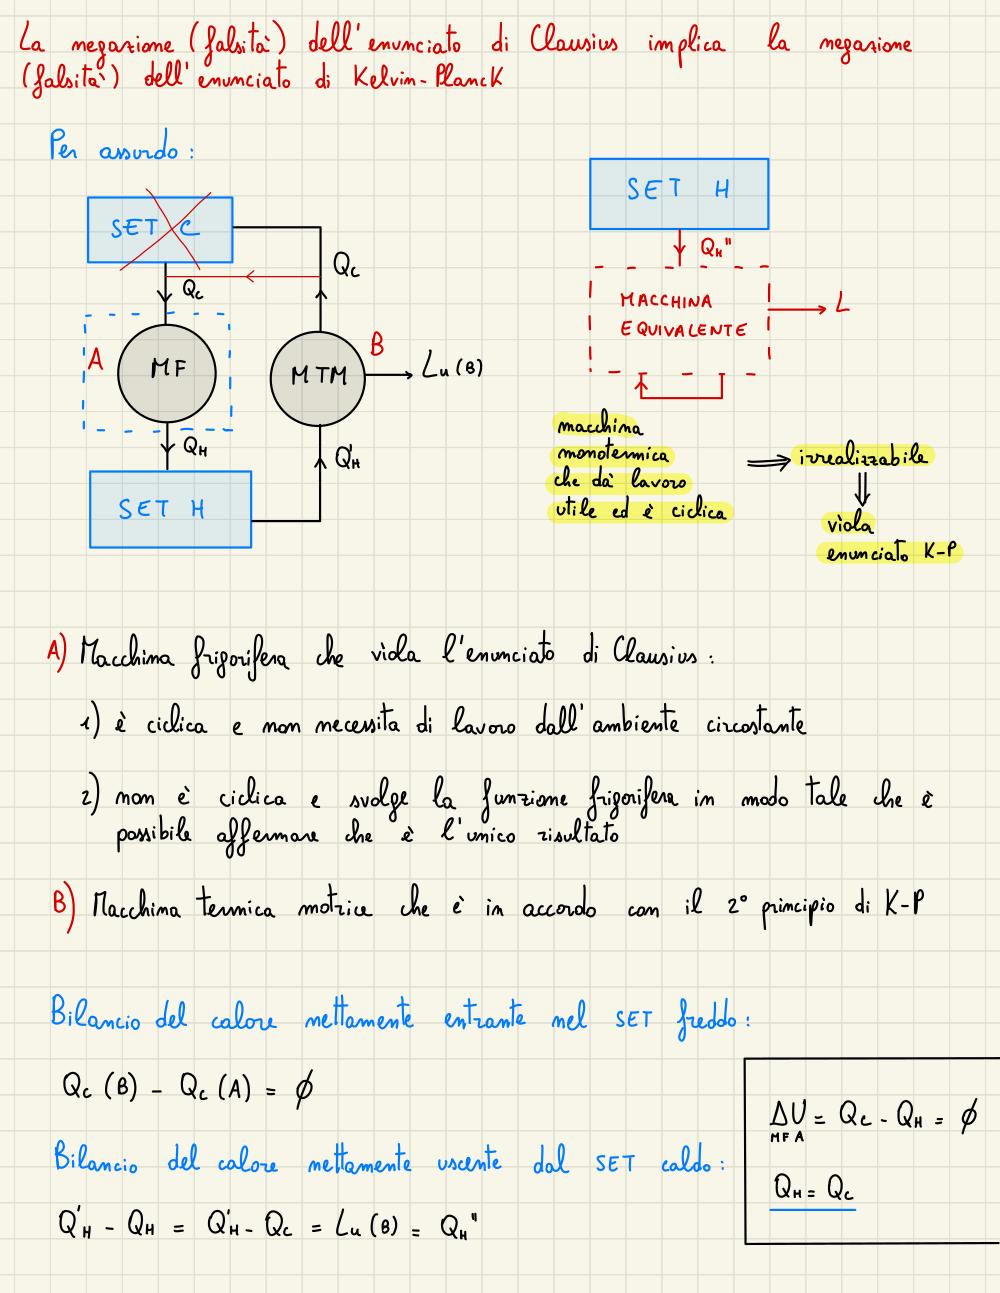 La negazione (falsità) dell'enunciato di Clausius implica la negazione
(falsità) dell'enunciato di Kelvin-Planck
Per assurdo:
SET C
Qc
Qc
A
MF
B
MTM
Lu (B)
QH
Q'H
SET H
SET H
QH"
MACCHINA
EQUIVALENTE
L
macchina
monotermica
che dà lavoro
utile ed è ciclica
⟹ irrealizzabile
⇓
viola
enunciato K-P
A) Macchina frigorifera che viola l'enunciato di Clausius:
1) è ciclica e non necessita di lavoro dall'ambiente circostante
2) non è ciclica e svolge la funzione frigorifera in modo tale che è
possibile affermare che è l'unico risultato
B) Macchina termica motrice che è in accordo con il 2° principio di K-P
Bilancio del calore nettamente entrante nel SET freddo:
Qc (B) - Qc (A) = ϕ
Bilancio del calore nettamente uscente dal SET caldo:
Q'H - QH = Q'H - Qc = Lu (B) = QH"
ΔU = Qc - QH = ϕ
MF A
QH = Qc